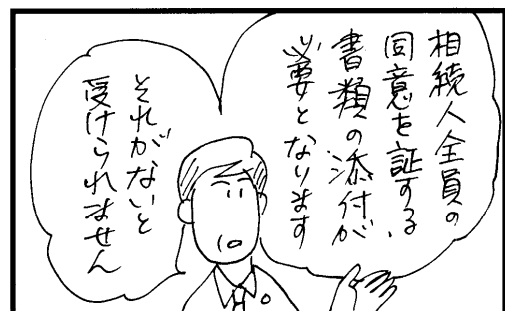 相続人全員の
同意を証する
書類の添付が
必要となります
それがないと
受けられません